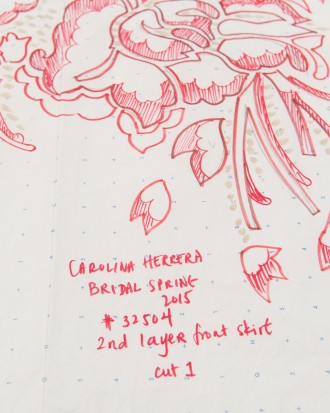 CAROLINA HERRERA
BRIDAL SPRING
2015
# 32504
2nd layer front skirt
cut 1